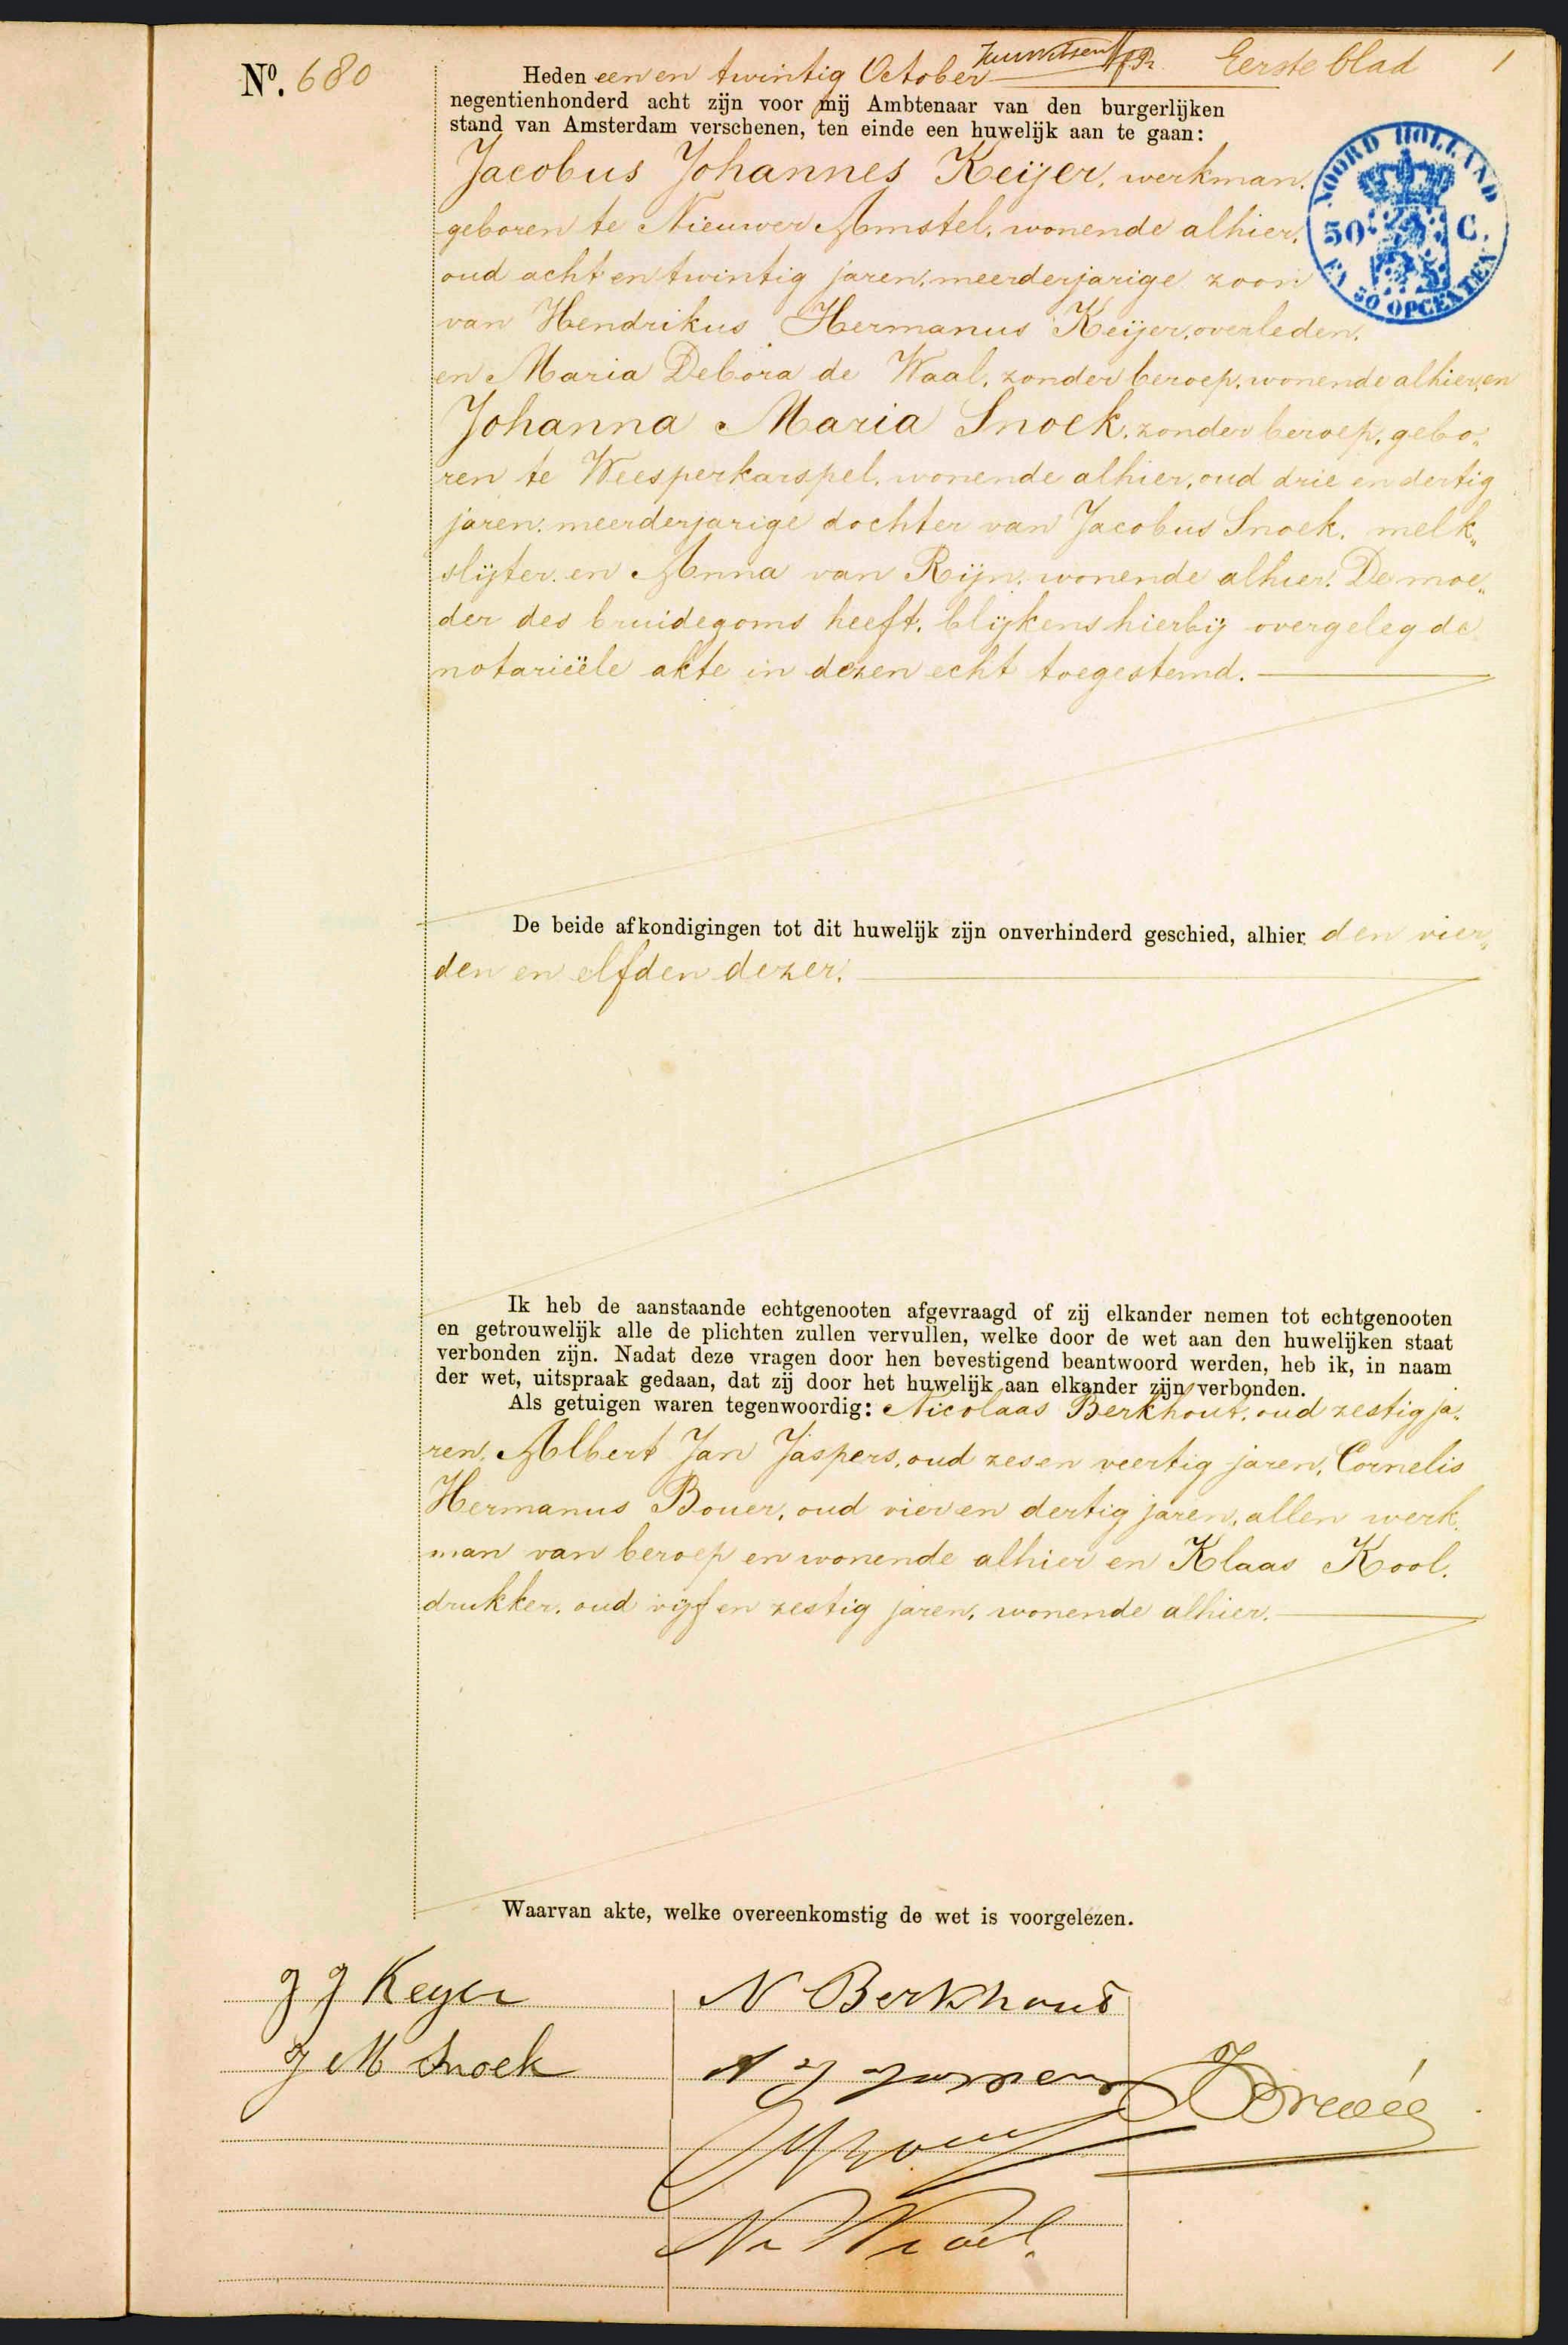 Nº. 680
Eerste blad 1
Heden een en twintig October
negentienhonderd acht zijn voor mij Ambtenaar van den burgerlijken
stand van Amsterdam verschenen, ten einde een huwelijk aan te gaan:
Jacobus Johannes Keijer, werkman,
geboren te Nieuwer Amstel, wonende alhier,
oud acht en twintig jaren, meerderjarige zoon
van Hendrikus Hermanus Keijer, overleden,
en Maria Debora de Waal, zonder beroep, wonende alhier, en
Johanna Maria Snoek, zonder beroep, gebo„
ren te Weesperkarspel, wonende alhier, oud drie en dertig
jaren, meerderjarige dochter van Jacobus Snoek, melk„
slijter, en Anna van Rijn, wonende alhier. De moe„
der des bruidegoms heeft, blijkens hierbij overgelegde
notarieële akte in dezen echt toegestemd.
NOORD HOLLAND
50 C.
EN 50 OPCENTEN
De beide afkondigingen tot dit huwelijk zijn onverhinderd geschied, alhier den vier„
den en elfden dezer.
Ik heb de aanstaande echtgenooten afgevraagd of zij elkander nemen tot echtgenooten
en getrouwelijk alle de plichten zullen vervullen, welke door de wet aan den huwelijken staat
verbonden zijn. Nadat deze vragen door hen bevestigend beantwoord werden, heb ik, in naam
der wet, uitspraak gedaan, dat zij door het huwelijk aan elkander zijn verbonden.
Als getuigen waren tegenwoordig: Nicolaas Berkhout, oud zestig ja„
ren, Albert Jan Jaspers, oud zes en veertig jaren, Cornelis
Hermanus Bouer, oud vier en dertig jaren, allen werk„
man van beroep en wonende alhier en Klaas Kool,
drukker, oud vijf en zestig jaren, wonende alhier.
Waarvan akte, welke overeenkomstig de wet is voorgelezen.
J J Keyer
N Berkhout
J M Snoek
A J Jaspers